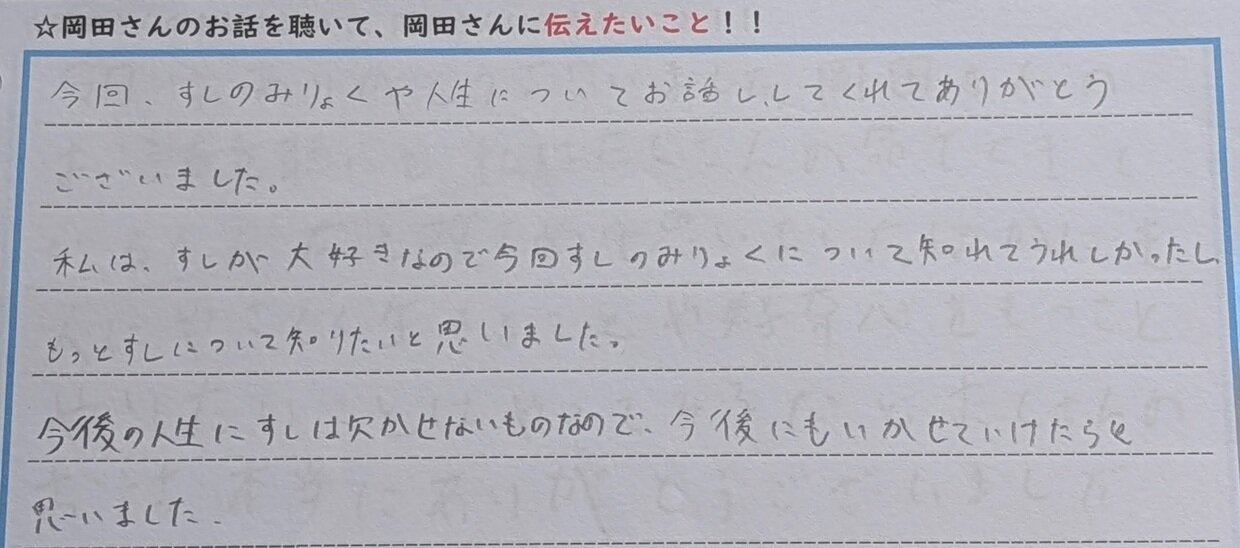 ☆岡田さんのお話を聴いて、岡田さんに伝えたいこと！！
今回、すしのみりょくや人生についてお話し、してくれてありがとう
ございました。
私は、すしが大好きなので今回すしのみりょくについて知れてうれしかったし、
もっとすしについて知りたいと思いました。
今後の人生にすしは欠かせないものなので、今後にもいかせていけたらと
思いました.